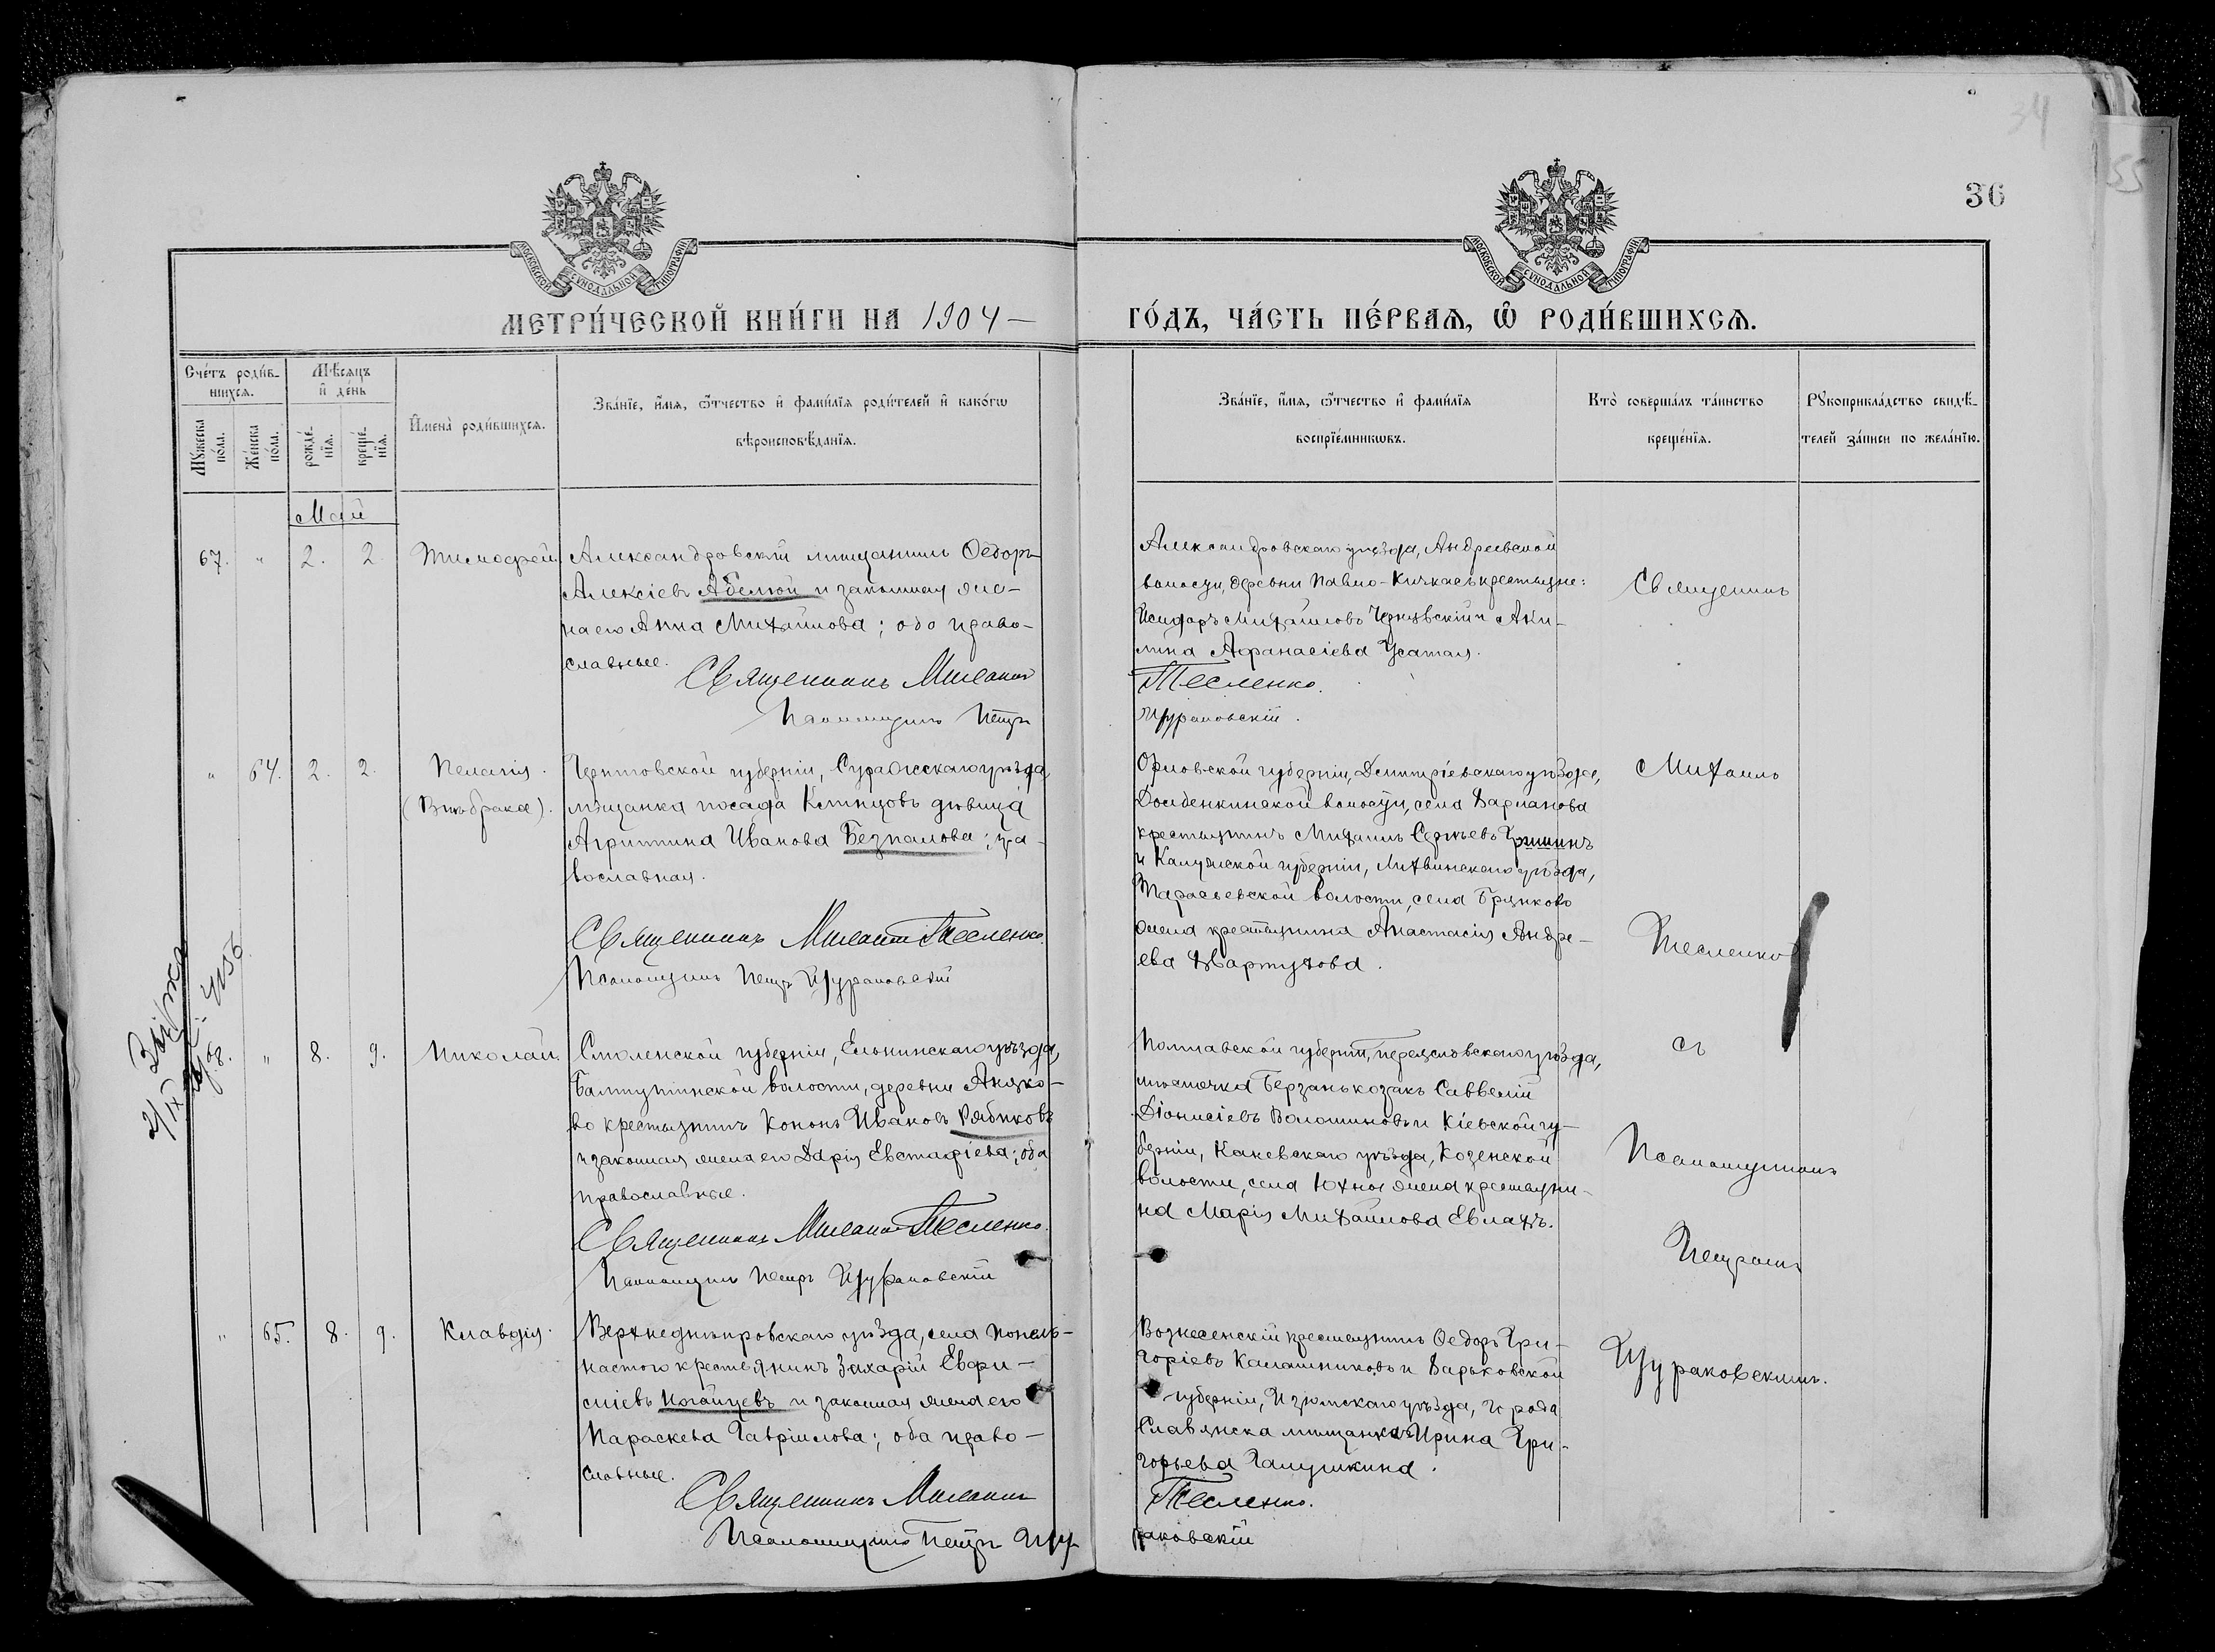 34
55
36
МОСКОВСКОЙ СѴНОДАЛЬНОЙ ТИПОГРАФІИ
МОСКОВСКОЙ СѴНОДАЛЬНОЙ ТИПОГРАФІИ
МЕТРИ́ЧЕСКОЙ КНИ́ГИ НА 1904 —
ГО́ДЪ, ЧА́СТЬ ПЕ́РВАѦ, Ѡ҆ РОДИ́ВШИХСѦ.
Сче́тъ роди́в-
шихсѧ.
Мѣ́сяцъ
и҆ де́нь
Мꙋ́жеска
по́ла.
Же́нска
по́ла.
рожде́-
нїѧ.
креще́-
нїѧ.
И҆мена̀ роди́вшихсѧ.
Зва́нїе, и҆́мѧ, ѻ҆́тчество и҆ фами́лїѧ роди́телей и҆ како́гѡ
вѣроисповѣ́данїѧ.
Зва́нїе, и҆́мѧ, ѻ҆́тчество и҆ фами́лїѧ
воспрїе́мникѡвъ.
Кто̀ соверша́лъ та́инство
креще́нїѧ.
Рꙋкоприкла́дство свидѣ́-
телей за́писи по жела́нїю.
Май
67. " 2. 2. Тимофей.
Александровскій мѣщанинъ Ѳедоръ
Алексіевъ Абелюй и законная же-
на его Анна Михаилова; оба право-
славные.
Священникъ Милантій
Псаломщикъ Петръ
Александровскаго уѣзда, Андреевской
волости, деревни Павло-Кичкасъ крестьяне:
Исидоръ Михаиловъ Чернявскій и Аки-
лина Афанасіева Усатая.
Тесленко.
Щураковскій.
Священникъ
" 64. 2. 2. Пелагія.
(Внѣбрака).
Черниговской губерніи, Суражскаго уѣзда,
мѣщанка посада Клинцовъ дѣвица
Агрипина Иванова Безпалова; пра-
вославная.
Священникъ Милантій Тесленко.
Псаломщикъ Петръ Щураковскій
Орловской губерніи, Дмитріевскаго уѣзда,
волости, села Варланова
крестьянинъ Михаилъ Сергѣевъ Гришинъ
и Калужской губерніи, Лихвинскаго уѣзда,
волости, села
жена крестьянина Анастасія Андре-
ева
Михаилъ
Тесленко
Выписка
2/IX 1955
68. " 8. 9. Николай.
Смоленской губерніи, Ельнинскаго уѣзда,
Балтутинской волости, деревни Андко-
во крестьянинъ Кононъ Ивановъ Рябиковъ
и законная жена его Дарія Евстафіева; оба
православные.
Священникъ Милантій Тесленко.
Псаломщикъ Петръ Щураковскій
Полтавской губерніи, Переяславскаго уѣзда,
мѣстечка Березань козакъ Савватій
Діонисіевъ Волошиновъ и Кіевской гу-
берніи, Каневскаго уѣзда, Козинской
волости, села жена крестьяни-
на Марія Михаилова Евлахъ.
съ
Псаломщикомъ
Петромъ
" 65. 8. 9. Клавдія.
Верхнеднѣпровскаго уѣзда, села Попель-
настого крестьянинъ Захарій Евфи-
міевъ Ногайцевъ и законная жена его
Параскева Гавріилова; оба право-
славные.
Священникъ Милантій
Псаломщикъ Петръ Щу-
Вознесенскій крестьянинъ Ѳедоръ Гри-
горіевъ Калашниковъ и Харьковской
губерніи, Изюмскаго уѣзда, города
Славянска мѣщанка Ирина Гри-
горьева Галушкина.
Тесленко.
раковскій
Щураковскимъ.